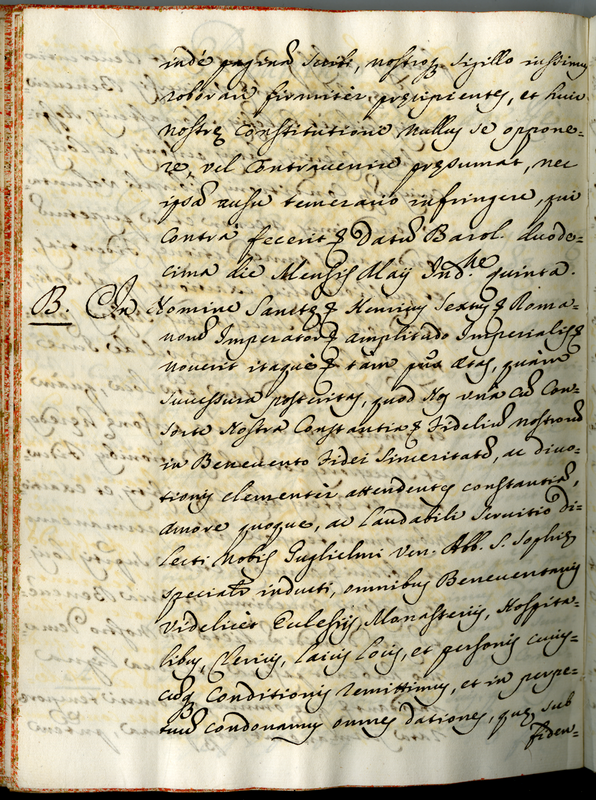 inde pagină scribi, nostroq; Sigillo iussimus
roborari firmiter precipientes, et huic
nostrę Constitutioni nullus se oppone=
re, vel Contravenire pręsumat, nec
ipsă ausu temerario infringere, qui
Contrà fecerit & Datŭ Barol. duode=
cima die Mensis Maÿ Ind.ne quinta.
B. In Nomine Sanctę & Henricus Sextus & Roma=
norŭ Imperator & amplitudo Imperialis &
noverit itaque & tàm pns ętas, quàm
successura posteritas, quod Nos unà cŭ Con=
sorte Nostra Constantia & Fideliŭ nostrorŭ
in Benevento Fidei Sinceritatĕ, ac divo=
tionis clementèr attendentes constantiă,
amore quoque, ac laudabili Servitio di=
lecti Nobis Guglielmi Ven. Abb. S. Sophię
speciali inducti, omnibus Beneventanis
videlicet Eclesijs, Monasterijs, Hospita=
libus, Clericis, Laicis Locis, et personis cuius=
cŭq; Conditionis remittimus, et in perpe=
tuŭ condonamus omnes dationes, quę sub
fiden=